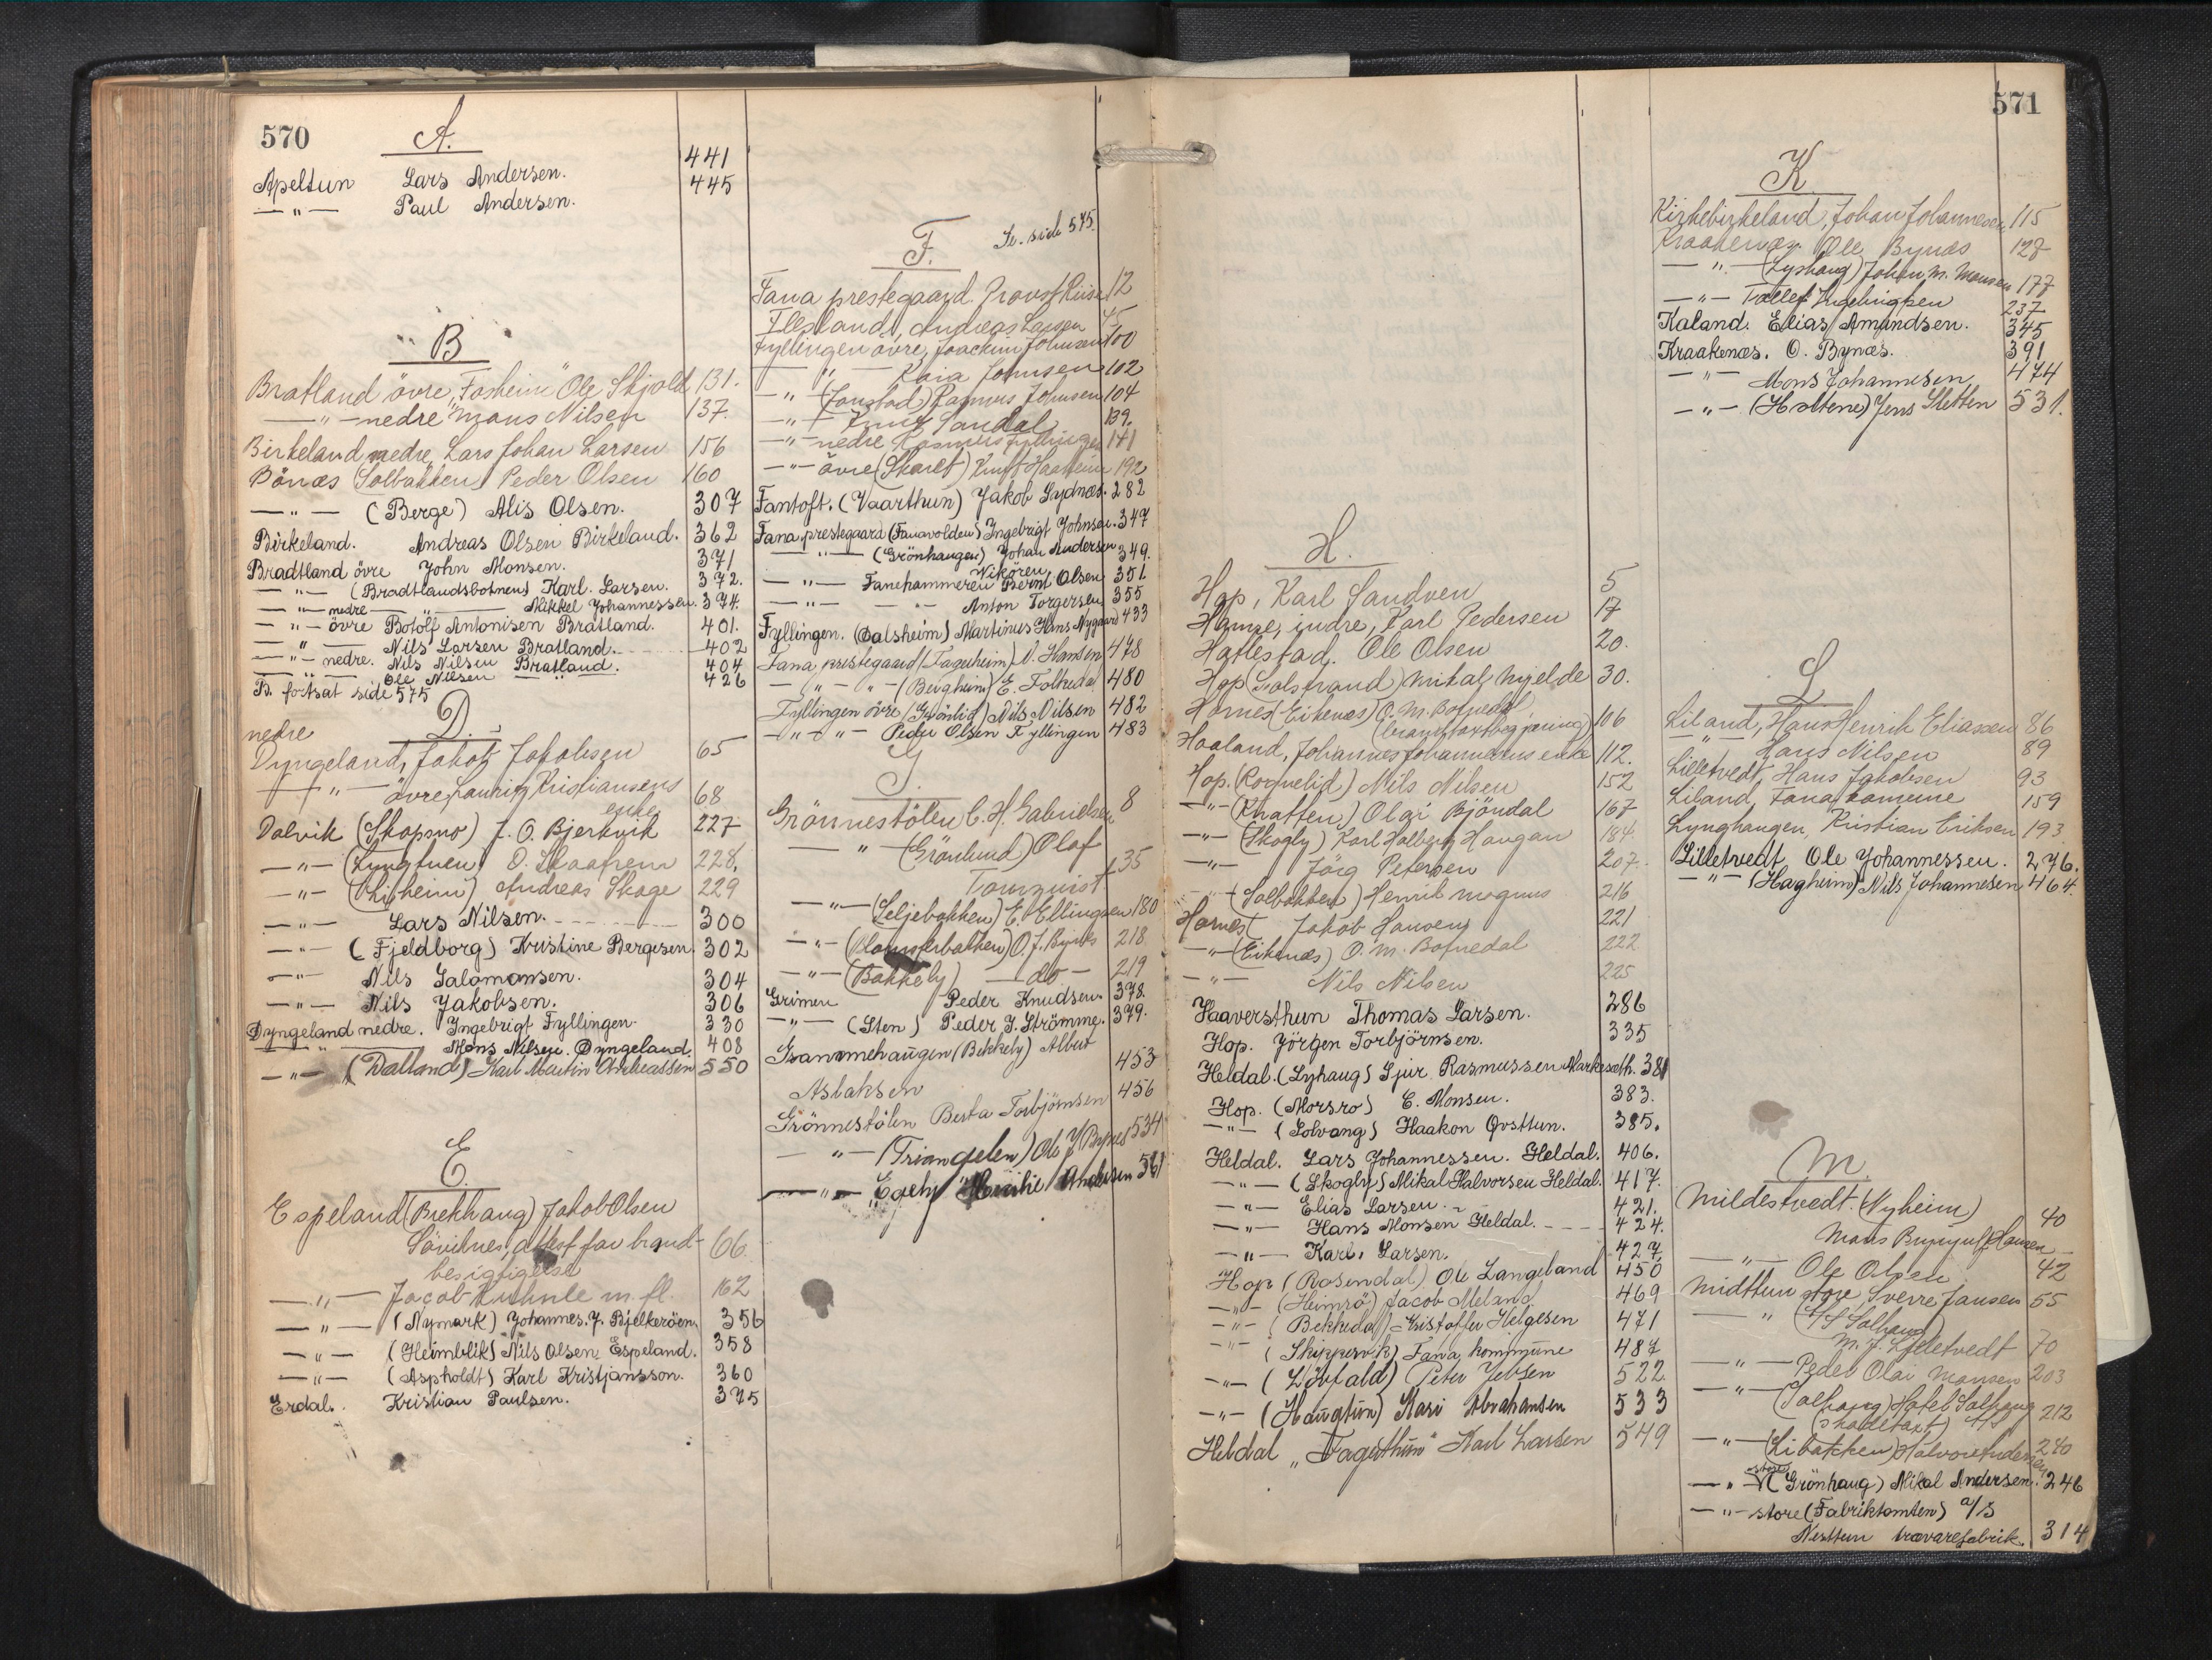 570
A.
Apeltun Lars Andersen. 441
—"— Paul Andersen. 445
B
Bratland övre, "Fosheim" Ole Skjold 131.
—"— nedre Mons Nilsen 137.
Birkeland nedre, Lars Johan Larsen 156
Bönæs (Solbakken) Peder Olsen 160
—"— (Berge) Alis Olsen. 307
Birkeland. Andreas Olsen Birkeland. 362
Bradtland övre John Monsen. 371
—"— (Bradtlandsbotnen) Karl. Larsen. 372.
—"— nedre —"— Mikkel Johannessen. 374.
—"— övre Botolf Antonisen Bratland. 401.
—"— Nils Larsen Bratland. 402
—"— nedre. Nils Nilsen Bratland. 404
—"— Ole Nilsen —"— 426
B. fortsat side 575
D.
nedre
Dyngeland, Jakob Jakobsen 65
—"— övre Lauritz Kristiansens
enke 68
Dalvik (Skopmo) J. O. Bjerkvik 227
—"— (Lyngtuen) O. Skaatrem 228.
—"— (Lisheim) Andreas Skage 229
—"— Lars Nilsen. 300
—"— (Fjeldborg) Kristine Bergesen. 302
—"— Nils Salamonsen. 304
—"— Nils Jakobsen. 306
Dyngeland nedre. Ingebrigt Fyllingen. 330
—"— Mons Nilsen. Dyngeland. 408
—"— (Dalland) Karl Martin Andreassen 550
E.
Espeland (Brekhaug) Jakob Olsen
Sörvitnes, attest for brand- 66.
besigtigelse
—"— Jacob Kuhnle m. fl. 162
—"— (Nymark) Johannes. J. Bjelkeröen. 356
—"— (Heimblik) Nils Olsen Espeland. 358
—"— (Aspholdt) Karl Kristjansson. 360
Erdal. Kristian Paulsen. 375
Se. side 575.
F.
Fana prestegaard. Provst Riise 12
Flesland, Andreas Larsen 45
Fyllingen övre, Joachim Johnsen 100
—"— Kaia Johnsen 102
—"— (Jonstad) Rasmus Johnsen 104
—"— Sandal 139.
—"— nedre Rasmus Fyllingen 141
—"— övre (Skaret) Knut Haaheim 192
Fantoft. (Vaarthun) Jakob Sydnæs. 282
Fana prestegaard (Fanavolden) Ingebrigt Johnsen. 347
—"— (Grönhaugen) Johan Andersen 349.
Nikören
—"— Fanehammeren Bernt Olsen 351
—"— —"— Anton Torgersen 355
Fyllingen. (Dalsheim) Martinus Hans Nygaard 433
Fana prestegaard (Fagerheim) N. Hansen 478
—"— —"— (Bergheim) E. Folkedal 480
Fyllingen övre (Grönlid) Nils Nilsen 482
—"— —"— Peder Olsen Fyllingen 483
G.
Grönnestölen C. H. Gabrielsen 8
—"— (Grönlund) Olaf
Tornquist 35
—"— (Seljebakken) E. Ellingsen 180
—"— (Blomsterbakken) O. J. Bynes 218
—"— (Bakkely) — do — 219
Grimen Peder Knudsen. 378.
—"— (Sten) Peder J. Strömme. 379.
Grammehaugen (Bekkely) Albert 453
Aslaksen 456
Grönnestölen Berta Torbjörnsen
—"— (Triangelen) Ole J. Bynes 534
—"— "Egely" Andersen 561
571
H.
Hop, Karl Sandven 5
Hamre, indre, Karl Pedersen 17
Hatlestad. Ole Olsen 20.
Hop (Solstrand) Mikal Mjelde 30.
Hornes (Eikenæs) O. M. Bofnedal
(brandtakstbegjæring) 106
Haaland, Johannes Johannesens enke 112.
Hop. (Rognelid) Nils Nilsen 152
—"— (Knatten) Olai Bjöndal 167
—"— (Skogly) Karl Halberg Haugan 184
—"— Jörg Petersen 207.
—"— (Solbakken) Henrik Magnus 216
Hornes Jakob Hansen 221
—"— (Eikenæs) O. M. Bofnedal 222
—"— Nils Nilsen 225
Haaversthun Thomas Larsen. 286
Hop. Jörgen Torbjörnsen. 335
Heldal. (Lyhaug) Sjur Rasmussen Markeseth. 381
Hop. (Morsro) E. Monsen. 383.
—"— (Solvang) Haakon Qvsttun. 385.
Heldal. Lars Johannessen. Heldal. 406.
—"— (Skogly) Mikal Halvorsen Heldal. 417.
—"— Elias Larsen. 421.
—"— Hans Monsen Heldal. 424.
—"— Karl. Larsen. 427.
Hop (Rosendal) Ole Langeland 450
—"— (Heimrö) Jacob Meland 469
—"— (Bekkedal) Kristoffer Helgesen 471
—"— (Skippervik) Fana kommune 487
—"— (Lövfald) Peter Jebsen 522
—"— (Haugtun) Kari Abrahamsen 533
Heldal "Fagerthun" Karl Larsen 549
K
Kirkebirkeland, Johan Johannesen 115
Kraakenæs. Ole Bynæs 127
—"— (Lyshaug) Johan M. Monsen 177
—"— Tollef Ingebrigtsen 237
Kaland. Elias Amundsen. 345
Kraakenæs. O. Bynæs. 391
—"— Mons Johannesen 474
—"— (Holtene) Jens Sletten 531.
L
Liland, Hans Henrik Eliassen 86
—"— Hans Nilsen 89
Lilletvedt, Hans Jakobsen 93
Liland, Fana kommune 159
Lynghaugen, Kristian Eriksen 193
Lilletvedt, Ole Johannessen. 276.
—"— (Hagheim) Nils Johannesen 464.
M.
Mildestvedt. (Nyheim)
Mons Brynjulf Hansen 40
—"— Ole Olsen 42
Midttun store, Sverre Jansen 55
—"— (A/S Solhaug)
M. J. Lilletvedt 70
—"— Peder Olai Monsen 203
—"— (Solhaug) Hotel Solhaug
(skadetakst) A/S 212
—"— (Libakken) Halvor Andersen 240
store
—"— (Grönhaug) Mikal Andersen. 246
—"— store (Fabriktomten) A/S
Nesttun trævarefabrik. 314